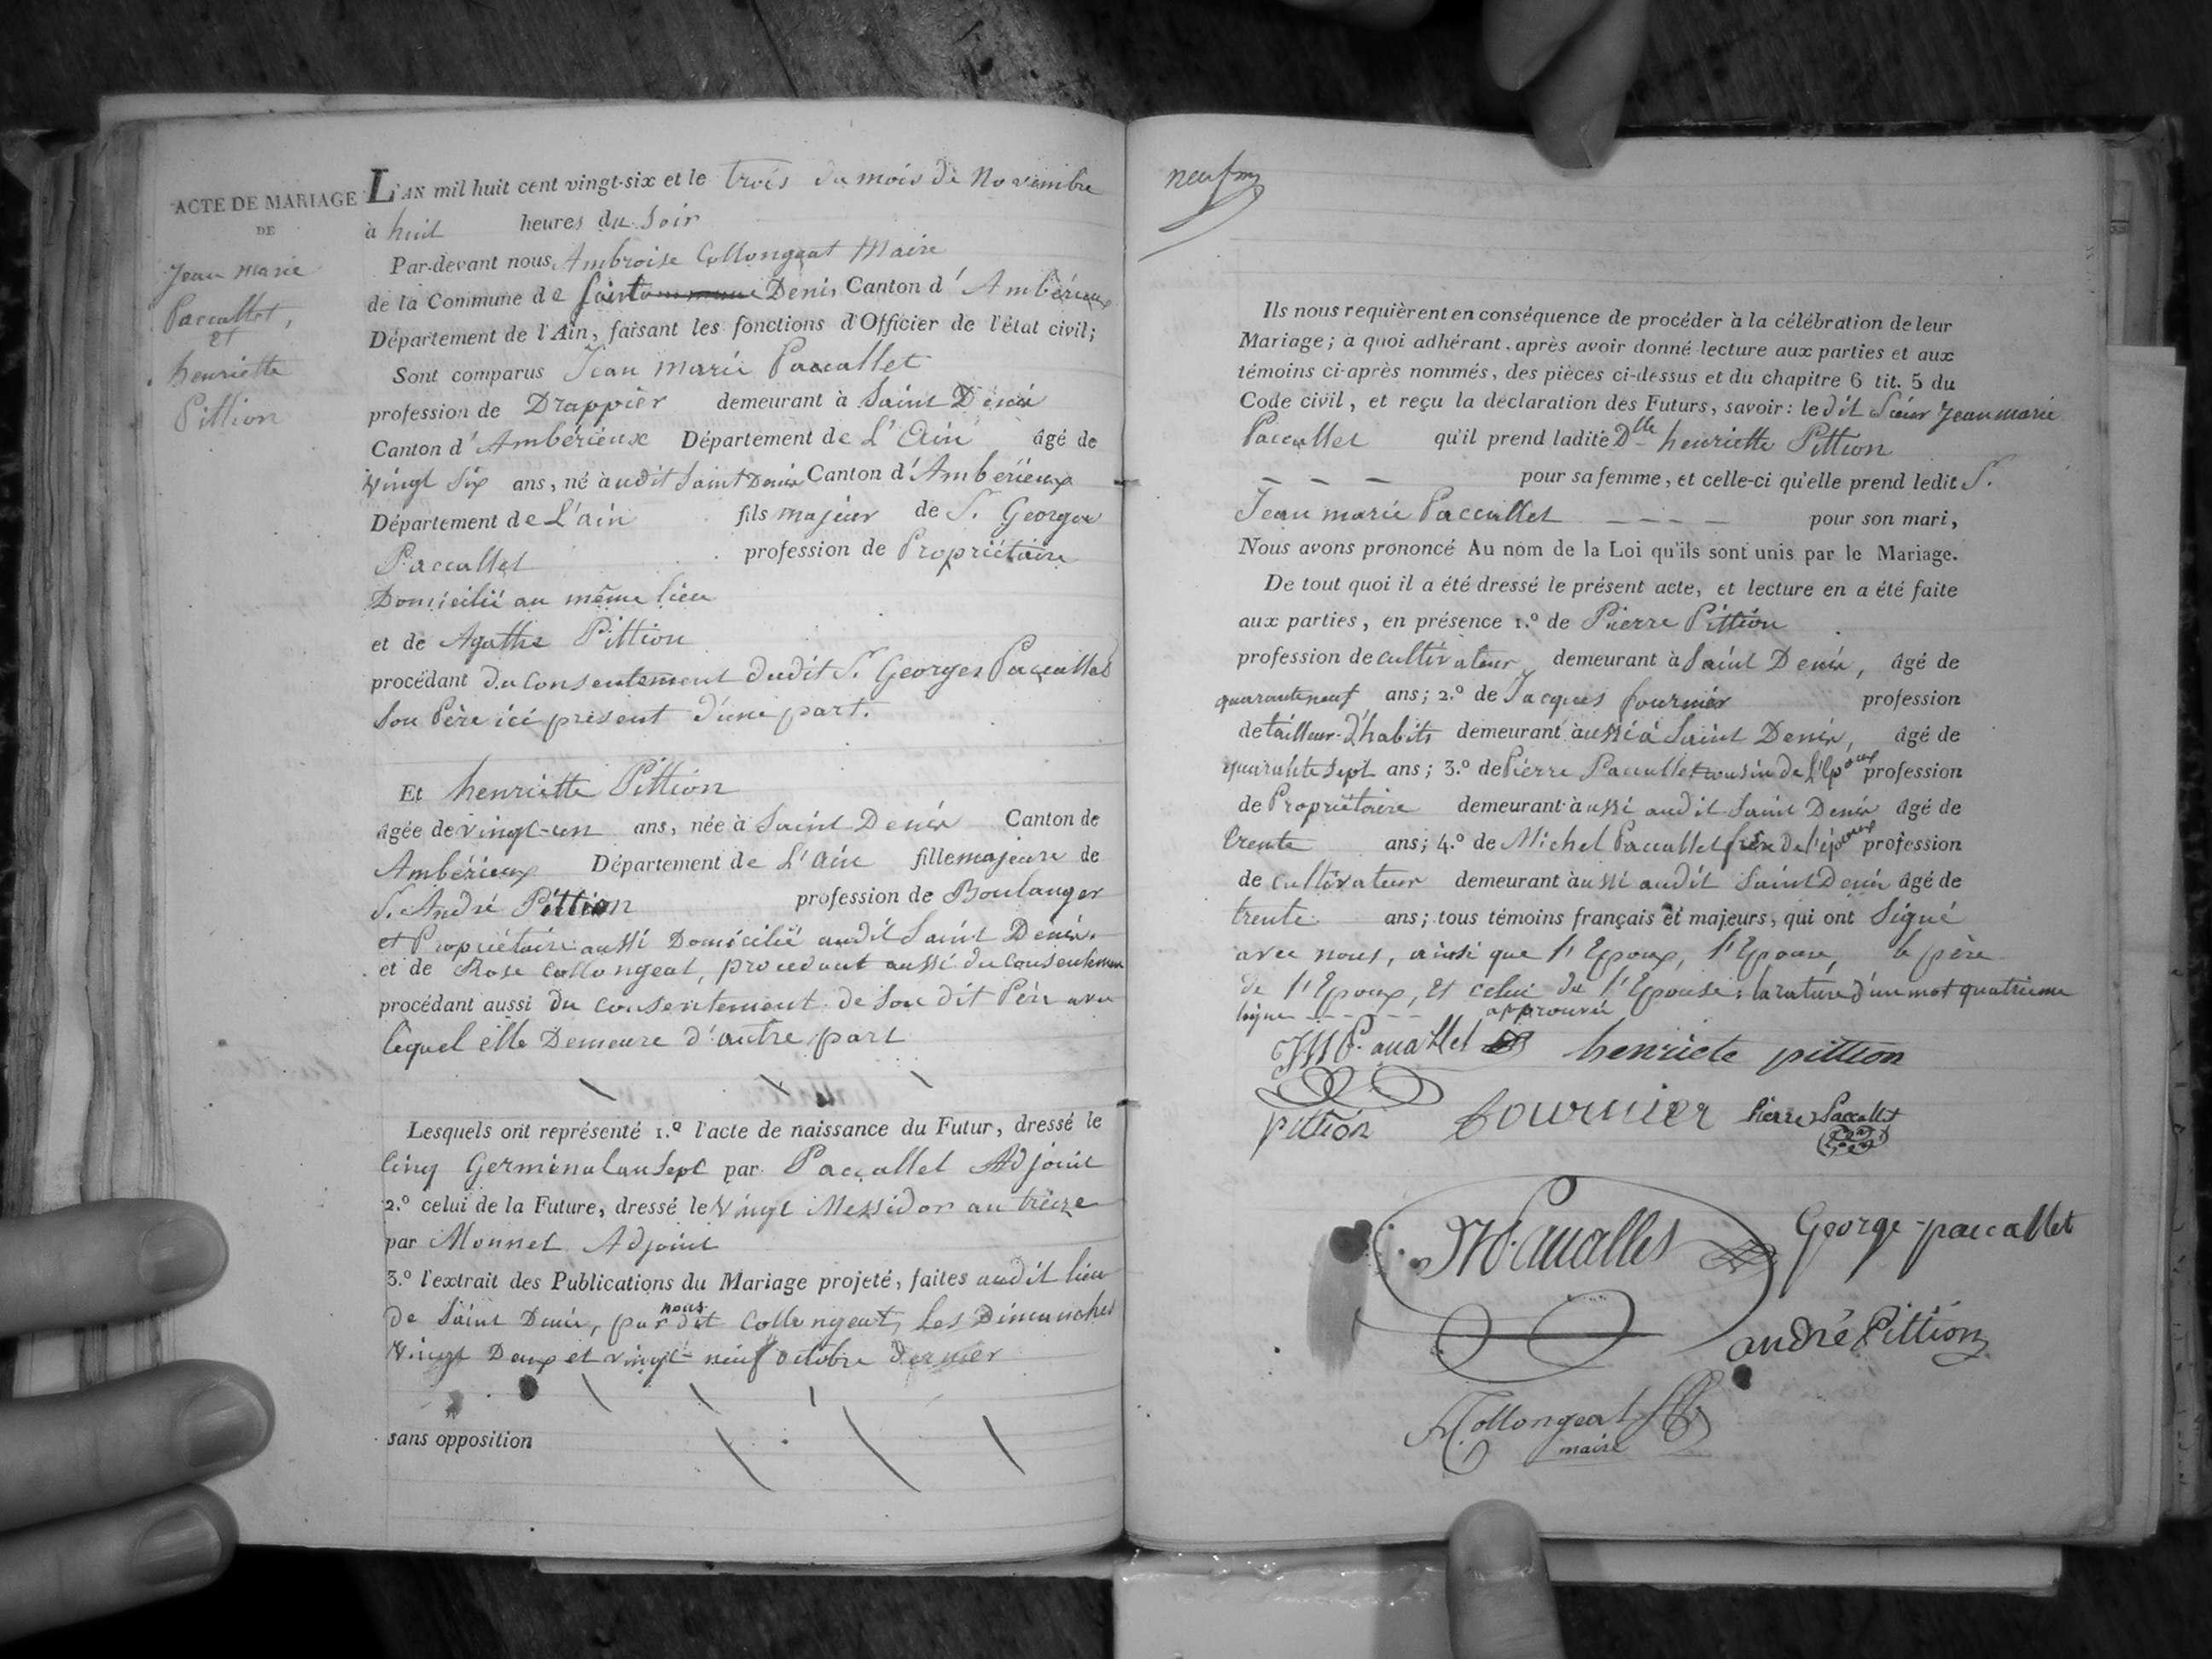 ACTE DE MARIAGE
DE
Jean marie
Paccallet,
et
henriette
Pittion
L'AN mil huit cent vingt-six et le trois du mois de Novembre
à huit heures du Soir
Par-devant nous, Ambroise Collongeat Maire
de la Commune de Saint Denis Canton d'Ambérieux
Département de l'Ain, faisant les fonctions d'Officier de l'état civil;
Sont comparus Jean marie Paccallet
profession de Drappier demeurant à Saint Denis
Canton d'Ambérieux Département de L'Ain âgé de
vingt six ans, né audit Saint Denis Canton d'Ambérieux
Département de L'ain fils majeur de S. Georges
Paccallet profession de Propriétaire
Domicilié au même lieu
et de Agathe Pittion
procédant du Consentement dudit S. Georges Paccallet
Son Père ici présent d'une part.
Et henriette Pittion
âgée de vingt-un ans, née à Saint Denis Canton de
Ambérieux Département de L'Ain fille majeure de
S. André Pittion profession de Boulanger
et Propriétaire aussi Domicilié audit Saint Denis.
et de Rose Collongeat, procedant aussi du Consentement
procédant aussi du Consentement de Son dit Père avec
lequel elle Demeure d'autre part
Lesquels ont représenté 1.º l'acte de naissance du Futur, dressé le
Cinq Germinal an Sept par Paccallet Adjoint
2.º celui de la Future, dressé le Vingt Messidor an treize
par Monnet Adjoint
3.º l'extrait des Publications du Mariage projeté, faites audit lieu
de Saint Denis, par nous dit Collongeat, Les Dimanches
Vingt Deux et vingt-neuf octobre dernier
sans opposition
Ils nous requièrent en conséquence de procéder à la célébration de leur
Mariage; à quoi adhérant, après avoir donné lecture aux parties et aux
témoins ci-après nommés, des pièces ci-dessus et du chapitre 6 tit. 5 du
Code civil, et reçu la déclaration des Futurs, savoir: le dit Sieur Jean marie
Paccallet qu'il prend ladite Dlle henriette Pittion
pour sa femme, et celle-ci qu'elle prend ledit S.
Jean marie Paccallet pour son mari,
Nous avons prononcé Au nom de la Loi qu'ils sont unis par le Mariage.
De tout quoi il a été dressé le présent acte, et lecture en a été faite
aux parties, en présence 1.º de Pierre Pittion
profession de cultivateur, demeurant à Saint Denis, âgé de
quarante neuf ans; 2.º de Jacques fournier profession
de tailleur-d'habits demeurant aussi à Saint Denis, âgé de
quarante sept ans; 3.º de Pierre Paccallet cousin de l'Epoux profession
de Propriétaire demeurant aussi audit Saint Denis âgé de
trente ans; 4.º de Michel Paccallet frère de l'époux profession
de cultivateur demeurant aussi audit Saint Denis âgé de
trente ans; tous témoins français et majeurs, qui ont Signé
avec nous, ainsi que l'Epoux, l'Epouse, le père
de l'Epoux, et celui de l'Epouse; la rature d'un mot quatrieme
ligne approuvée
henriete pittion
pittion
fournier
pierre Paccallet
George paccallet
andré Pittion
Collongeat
maire